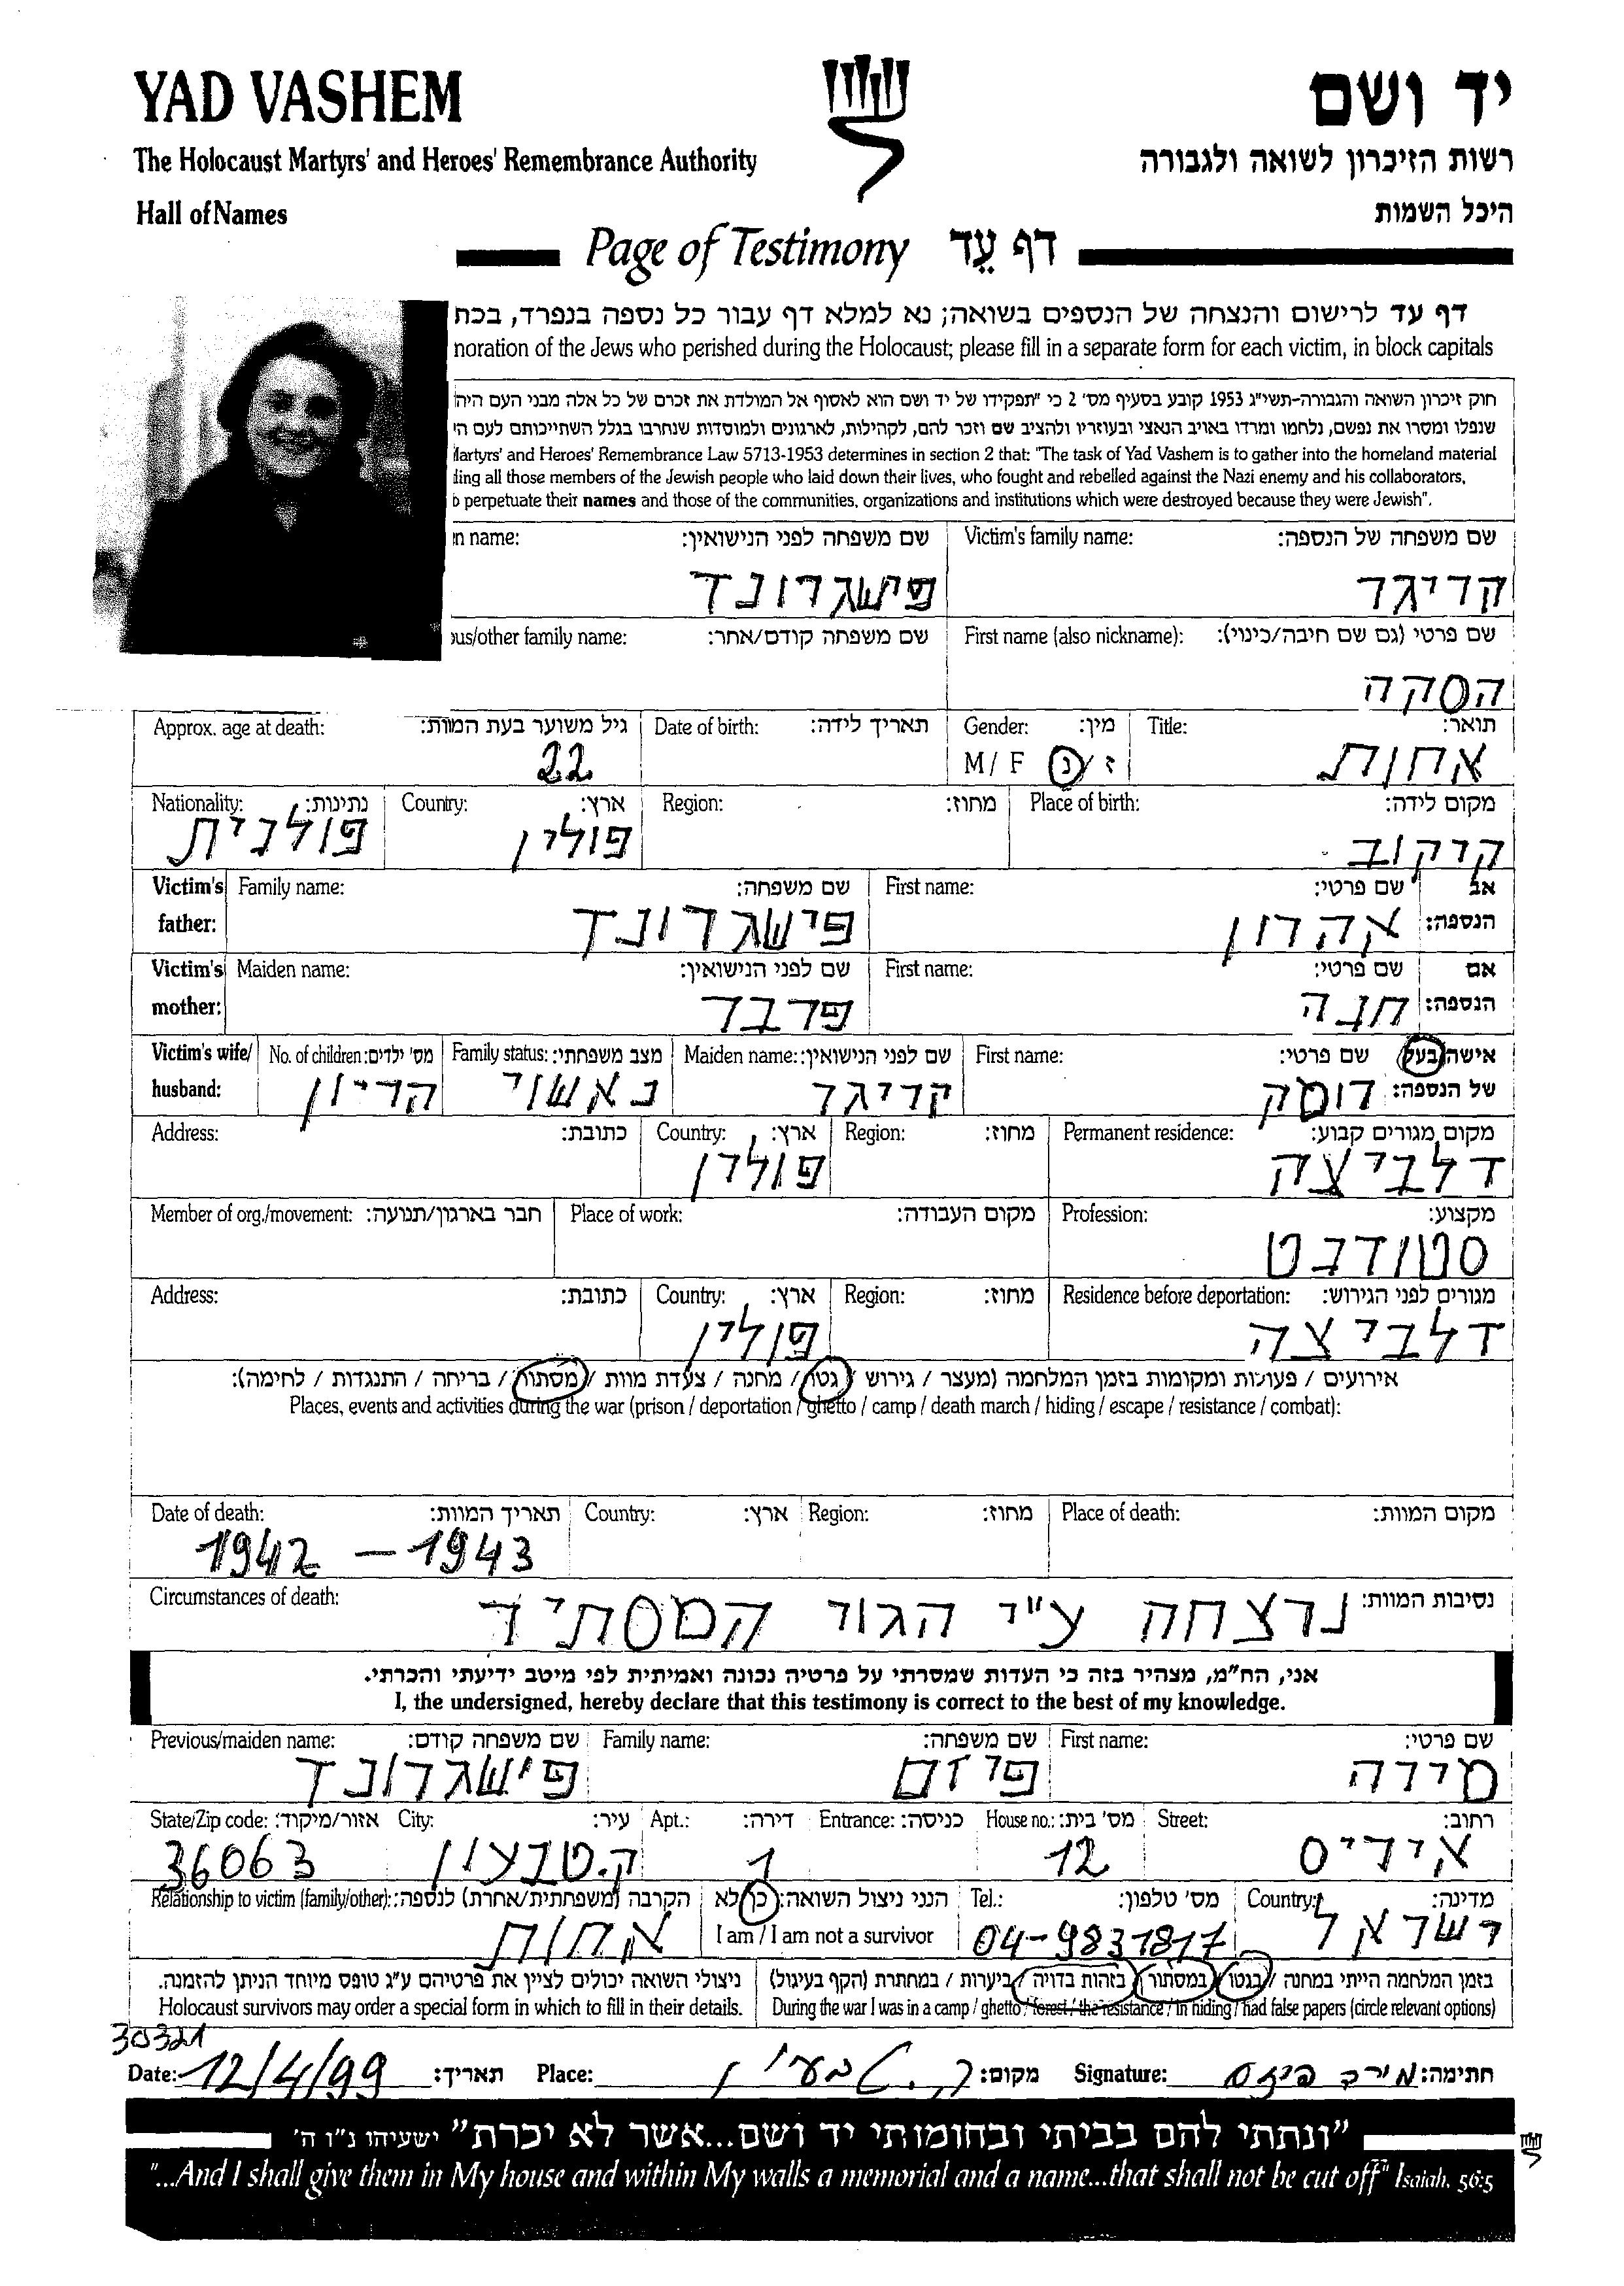 YAD VASHEM
יד ושם
The Holocaust Martyrs' and Heroes' Remembrance Authority
רשות הזיכרון לשואה ולגבורה
Hall of Names
היכל השמות
Page of Testimony דף עֵד
דף עד לרישום והנצחה של הנספים בשואה; נא למלא דף עבור כל נספה בנפרד, בכת
noration of the Jews who perished during the Holocaust; please fill in a separate form for each victim, in block capitals
חוק זיכרון השואה והגבורה-תשי"ג 1953 קובע בסעיף מס' 2 כי "תפקידו של יד ושם הוא לאסוף אל המולדת את זכרם של כל אלה מבני העם היה
שנפלו ומסרו את נפשם, נלחמו ומרדו באויב הנאצי ובעוזריו ולהציב שם וזכר להם, לקהילות, לארגונים ולמוסדות שנחרבו בגלל השתייכותם לעם הי
Martyrs' and Heroes' Remembrance Law 5713-1953 determines in section 2 that: "The task of Yad Vashem is to gather into the homeland material
ding all those members of the Jewish people who laid down their lives, who fought and rebelled against the Nazi enemy and his collaborators,
o perpetuate their names and those of the communities, organizations and institutions which were destroyed because they were Jewish".
שם משפחה של הנספה: Victim's family name: שם משפחה לפני הנישואין: n name:
קריגר פישגרונד
שם פרטי (גם שם חיבה/כינוי): First name (also nickname): שם משפחה קודם/אחר: ous/other family name:
הסקה
תואר: Title: מין: Gender: תאריך לידה: Date of birth: גיל משוער בעת המוות: Approx. age at death:
אחות ז / נ M / F 22
מקום לידה: Place of birth: מחוז: Region: ארץ: Country: נתינות: Nationality:
קרקוב פולין פולנית
אב שם פרטי: First name: שם משפחה: Family name: Victim's
הנספה: אהרון פישגרונד father:
אם שם פרטי: First name: שם לפני הנישואין: Maiden name: Victim's
הנספה: חנה פרבר mother:
אישה/בעל שם פרטי: First name: שם לפני הנישואין: Maiden name: מצב משפחתי: Family status: מס' ילדים: No. of children: Victim's wife/
של הנספה: רומק קריגר נאשוי הריון husband:
מקום מגורים קבוע: Permanent residence: מחוז: Region: ארץ: Country: כתובת: Address:
דלביצה פולין
מקצוע: Profession: מקום העבודה: Place of work: חבר בארגון/תנועה: Member of org./movement:
סטודנט
מגורים לפני הגירוש: Residence before deportation: מחוז: Region: ארץ: Country: כתובת: Address:
דלביצה פולין
אירועים / פעולות ומקומות בזמן המלחמה (מעצר / גירוש / גטו / מחנה / צעדת מוות / מסתור / בריחה / התנגדות / לחימה):
Places, events and activities during the war (prison / deportation / ghetto / camp / death march / hiding / escape / resistance / combat):
מקום המוות: Place of death: מחוז: Region: ארץ: Country: תאריך המוות: Date of death:
1942 – 1943
נסיבות המוות: Circumstances of death:
נרצחה ע"י הגוי המסתיר
אני, הח"מ, מצהיר בזה כי העדות שמסרתי על פרטיה נכונה ואמיתית לפי מיטב ידיעתי והכרתי.
I, the undersigned, hereby declare that this testimony is correct to the best of my knowledge.
שם פרטי: First name: שם משפחה: Family name: שם משפחה קודם: Previous/maiden name:
מירה פיזם פישגרונד
רחוב: Street: מס' בית: House no.: כניסה: Entrance: דירה: Apt.: עיר: City: אזור/מיקוד: State/Zip code:
איריס 12 1 ק.טבעון 36063
מדינה: Country: מס' טלפון: Tel.: הנני ניצול השואה: כן/לא הקרבה (משפחתית/אחרת) לנספה: Relationship to victim (family/other):
ישראל 04-9831817 I am / I am not a survivor אחות
בזמן המלחמה הייתי במחנה / בגטו / במסתור / בזהות בדויה / ביערות / במחתרת (הקף בעיגול)
During the war I was in a camp / ghetto / forest / the resistance / in hiding / had false papers (circle relevant options)
ניצולי השואה יכולים לציין את פרטיהם ע"ג טופס מיוחד הניתן להזמנה.
Holocaust survivors may order a special form in which to fill in their details.
30321
חתימה: מירה פיזם Signature: מקום: ק. טבעון Place: תאריך: 12/4/99 Date:
"ונתתי להם בביתי ובחומותי יד ושם...אשר לא יכרת" ישעיהו נ"ו ה'
"...And I shall give them in My house and within My walls a memorial and a name...that shall not be cut off" Isaiah, 56:5